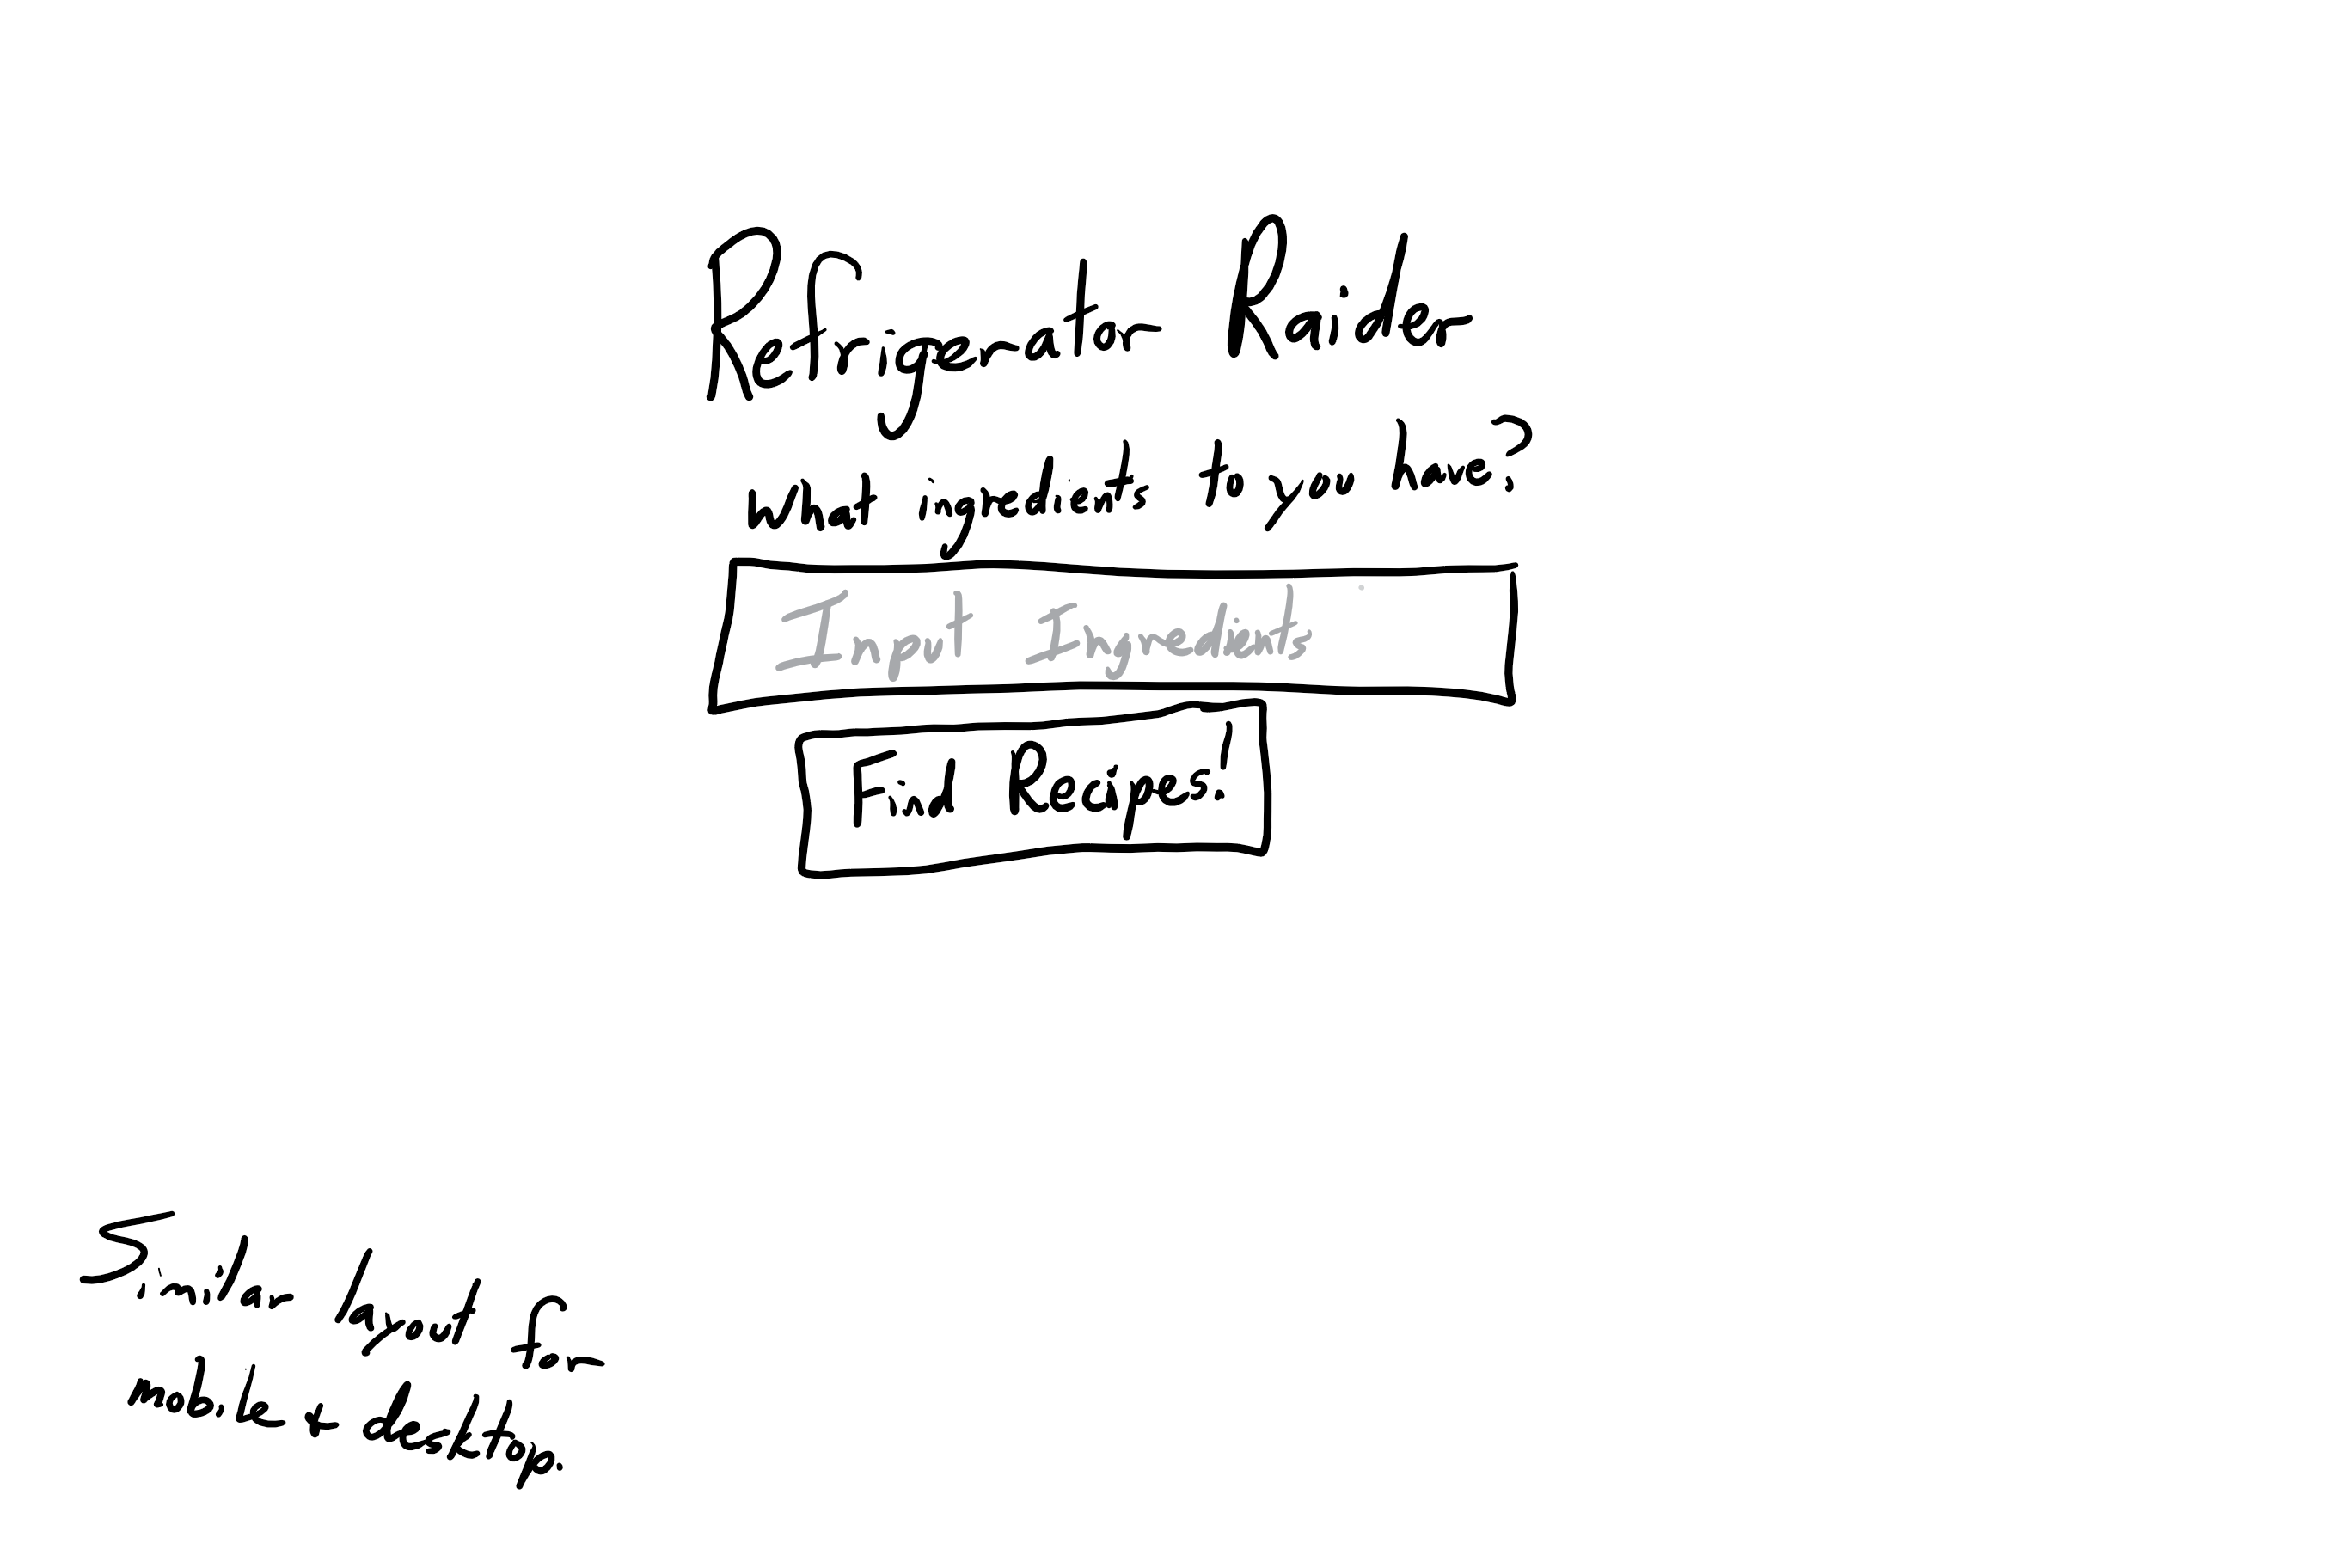 Refrigerator Raider
What ingredients to you have?
Input Ingredients
Find Recipes!
Similar layout for
mobile + desktop.